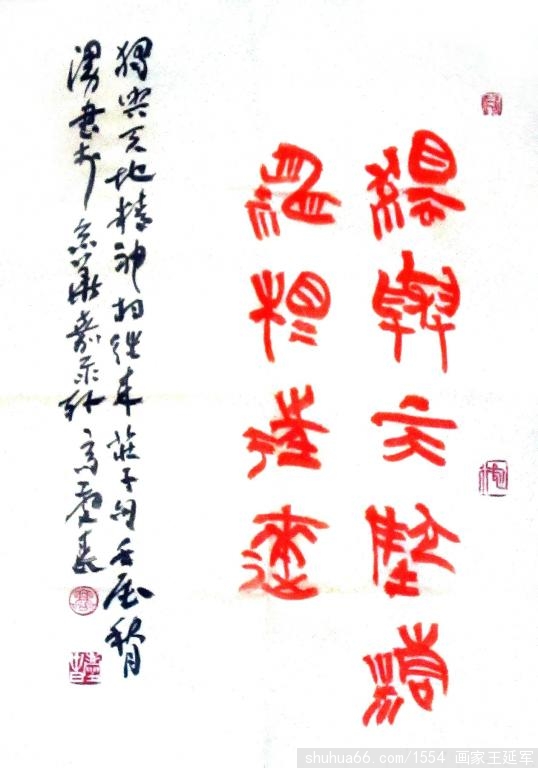 獨與天地精
神相往來
獨與天地精神相往來莊子句秋月
漫書於京華軒高
shuhua66.com/1554 画家王延军